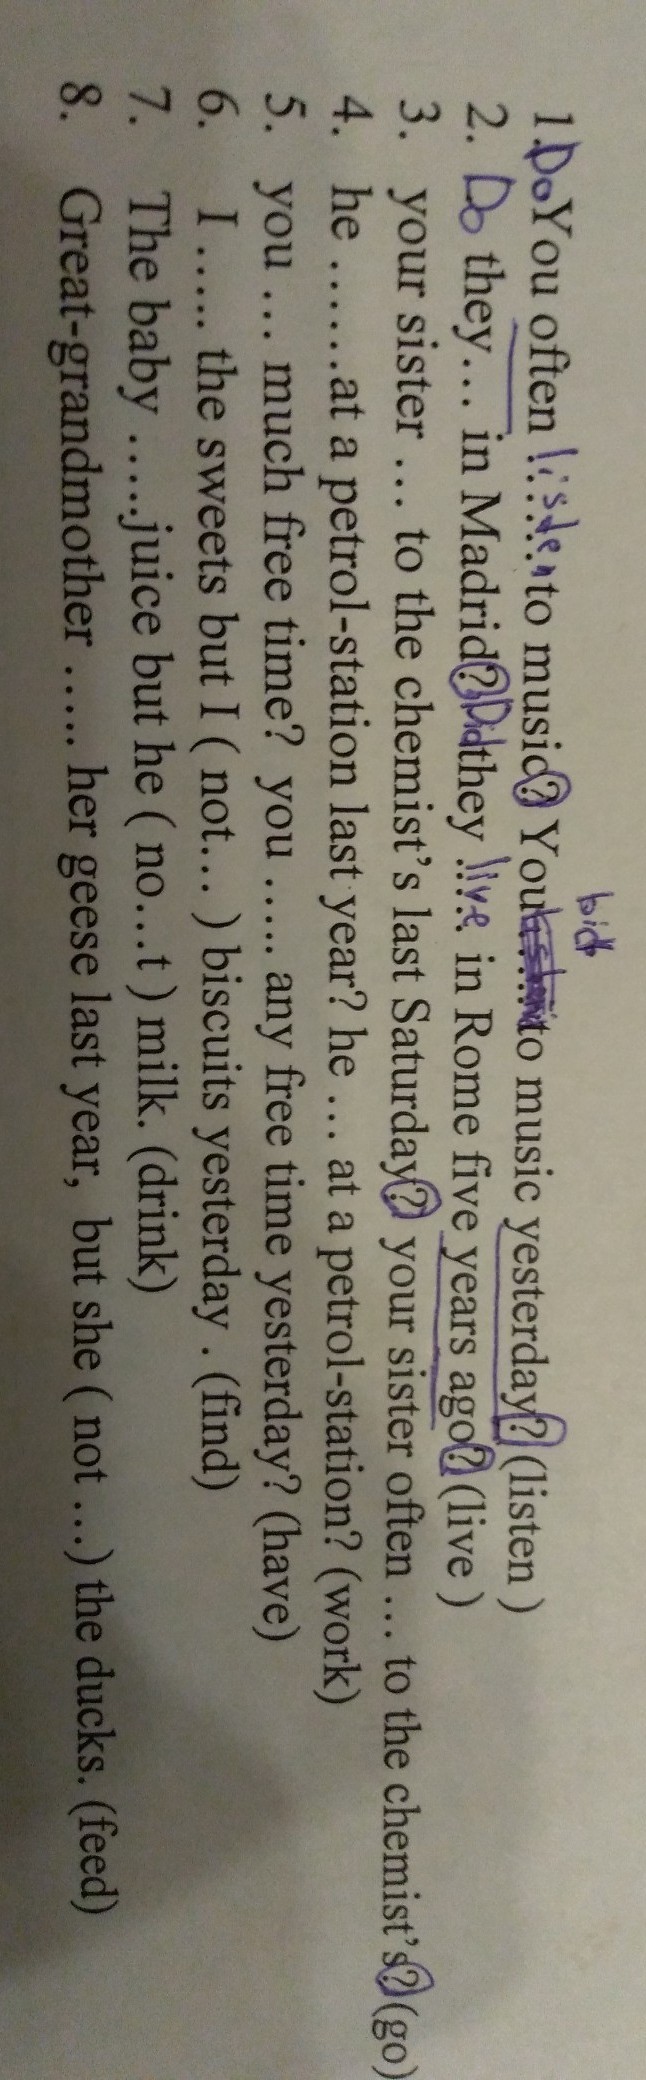 bid
1. Do You often listen to music? You to music yesterday? (listen )
2. Do they... in Madrid? Did they live in Rome five years ago? (live )
3. your sister ... to the chemist's last Saturday? your sister often ... to the chemist's? (go)
4. he .......at a petrol-station last year? he ... at a petrol-station? (work)
5. you ... much free time? you ..... any free time yesterday? (have)
6. I ...... the sweets but I ( not... ) biscuits yesterday . (find)
7. The baby .....juice but he ( no...t ) milk. (drink)
8. Great-grandmother ...... her geese last year, but she ( not ...) the ducks. (feed)